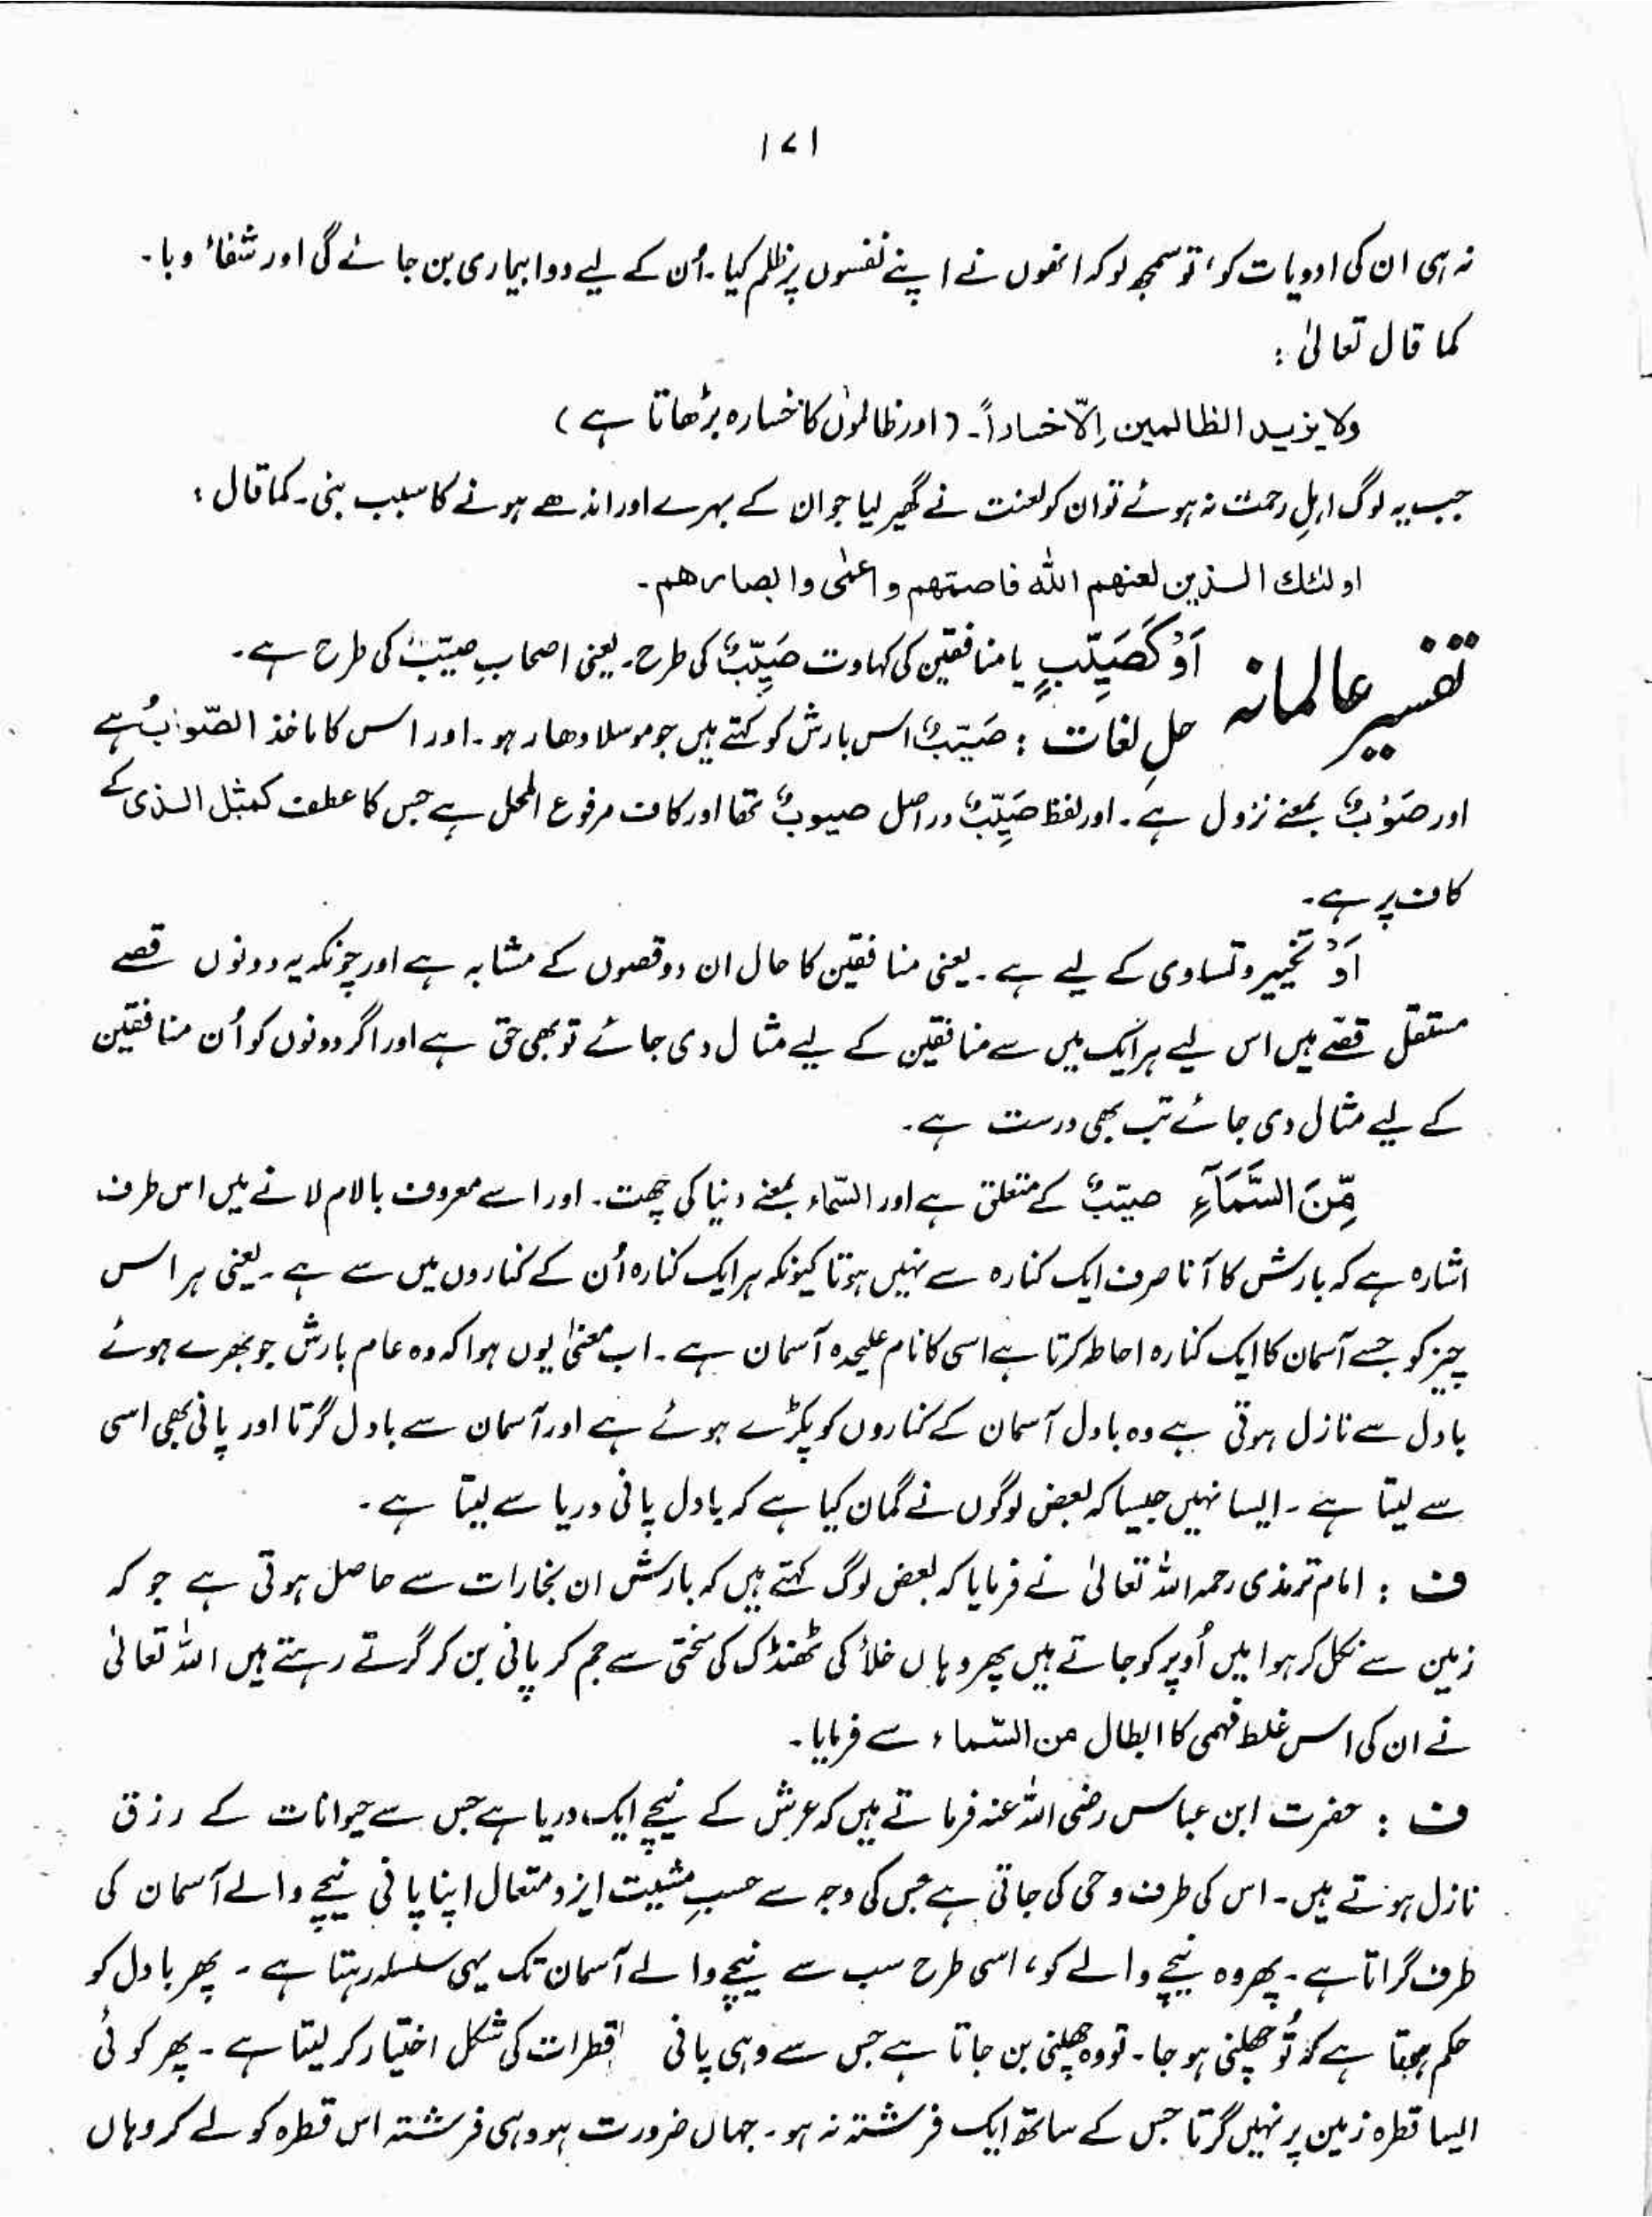 ۱۷۱
نہ ہی ان کی ادویات کو، تو سمجھ لو کہ انھوں نے اپنے نفسوں پر ظلم کیا۔ اُن کے لیے دوا بیماری بن جائے گی اور شفاء وبا۔
کما قال تعالیٰ :
ولا یزید الظالمین اِلّا خساراً۔ (اور ظالموں کا خسارہ بڑھاتا ہے)
جب یہ لوگ اہلِ رحمت نہ ہوئے تو ان کو لعنت نے گھیر لیا جو ان کے بہرے اور اندھے ہونے کا سبب بنی۔ کما قال :
اولئك الذین لعنهم الله فاصمّهم واعمٰی وابصارهم۔
تفسیر عالمانہ اَوْ كَصَيِّبٍ یا منافقین کی کہاوت صَیِّبٌ کی طرح۔ یعنی اصحابِ صیّبٌ کی طرح ہے۔
حلِ لغات : صَیّبٌ اس بارش کو کہتے ہیں جو موسلا دھار ہو۔ اور اس کا ماخذ الصّوابُ ہے
اور صَوْبٌ بمعنے نزول ہے۔ اور لفظ صَیِّبٌ دراصل صیوبٌ تھا اور کاف مرفوع المحل ہے جس کا عطف کمثل الذی کے
کاف پر ہے۔
اَوْ تخییر و تساوی کے لیے ہے۔ یعنی منافقین کا حال ان دو قصوں کے مشابہ ہے اور چونکہ یہ دونوں قصے
مستقل قصّے ہیں اس لیے ہر ایک میں سے منافقین کے لیے مثال دی جائے تو بھی حق ہے اور اگر دونوں کو اُن منافقین
کے لیے مثال دی جائے تب بھی درست ہے۔
مِّنَ السَّمَآءِ صیّبٌ کے متعلق ہے اور السّماء بمعنے دنیا کی چھت۔ اور اسے معروف بالام لانے میں اس طرف
اشارہ ہے کہ بارش کا آنا صرف ایک کنارہ سے نہیں ہوتا کیونکہ ہر ایک کنارہ اُن کے کناروں میں سے ہے۔ یعنی ہر اس
چیز کو جسے آسمان کا ایک کنارہ احاطہ کرتا ہے اسی کا نام علیحدہ آسمان ہے۔ اب معنیٰ یوں ہوا کہ وہ عام بارش جو بھرے ہوئے
بادل سے نازل ہوتی ہے وہ بادل آسمان کے کناروں کو پکڑے ہوئے ہے اور آسمان سے بادل گرتا اور پانی بھی اسی
سے لیتا ہے۔ ایسا نہیں جیسا کہ بعض لوگوں نے گمان کیا ہے کہ بادل پانی دریا سے لیتا ہے۔
ف : امام ترمذی رحمہ اللہ تعالیٰ نے فرمایا کہ بعض لوگ کہتے ہیں کہ بارش ان بخارات سے حاصل ہوتی ہے جو کہ
زمین سے نکل کر ہوا میں اُوپر کو جاتے ہیں پھر وہاں خلاء کی ٹھنڈک کی سختی سے جم کر پانی بن کر گرتے رہتے ہیں اللہ تعالیٰ
نے ان کی اس غلط فہمی کا ابطال من السّماء سے فرمایا۔
ف : حضرت ابن عباس رضی اللہ عنہ فرماتے ہیں کہ عرش کے نیچے ایک دریا ہے جس سے حیوانات کے رزق
نازل ہوتے ہیں۔ اس کی طرف وحی کی جاتی ہے جس کی وجہ سے حسبِ مشیت ایزد متعال اپنا پانی نیچے والے آسمان کی
طرف گراتا ہے۔ پھر وہ نیچے والے کو، اسی طرح سب سے نیچے والے آسمان تک یہی سلسلہ رہتا ہے۔ پھر بادل کو
حکم ہوتا ہے کہ تُو چھلنی ہو جا۔ تو وہ چھلنی بن جاتا ہے جس سے وہی پانی قطرات کی شکل اختیار کر لیتا ہے۔ پھر کوئی
ایسا قطرہ زمین پر نہیں گرتا جس کے ساتھ ایک فرشتہ نہ ہو۔ جہاں ضرورت ہو وہی فرشتہ اس قطرہ کو لے کر وہاں